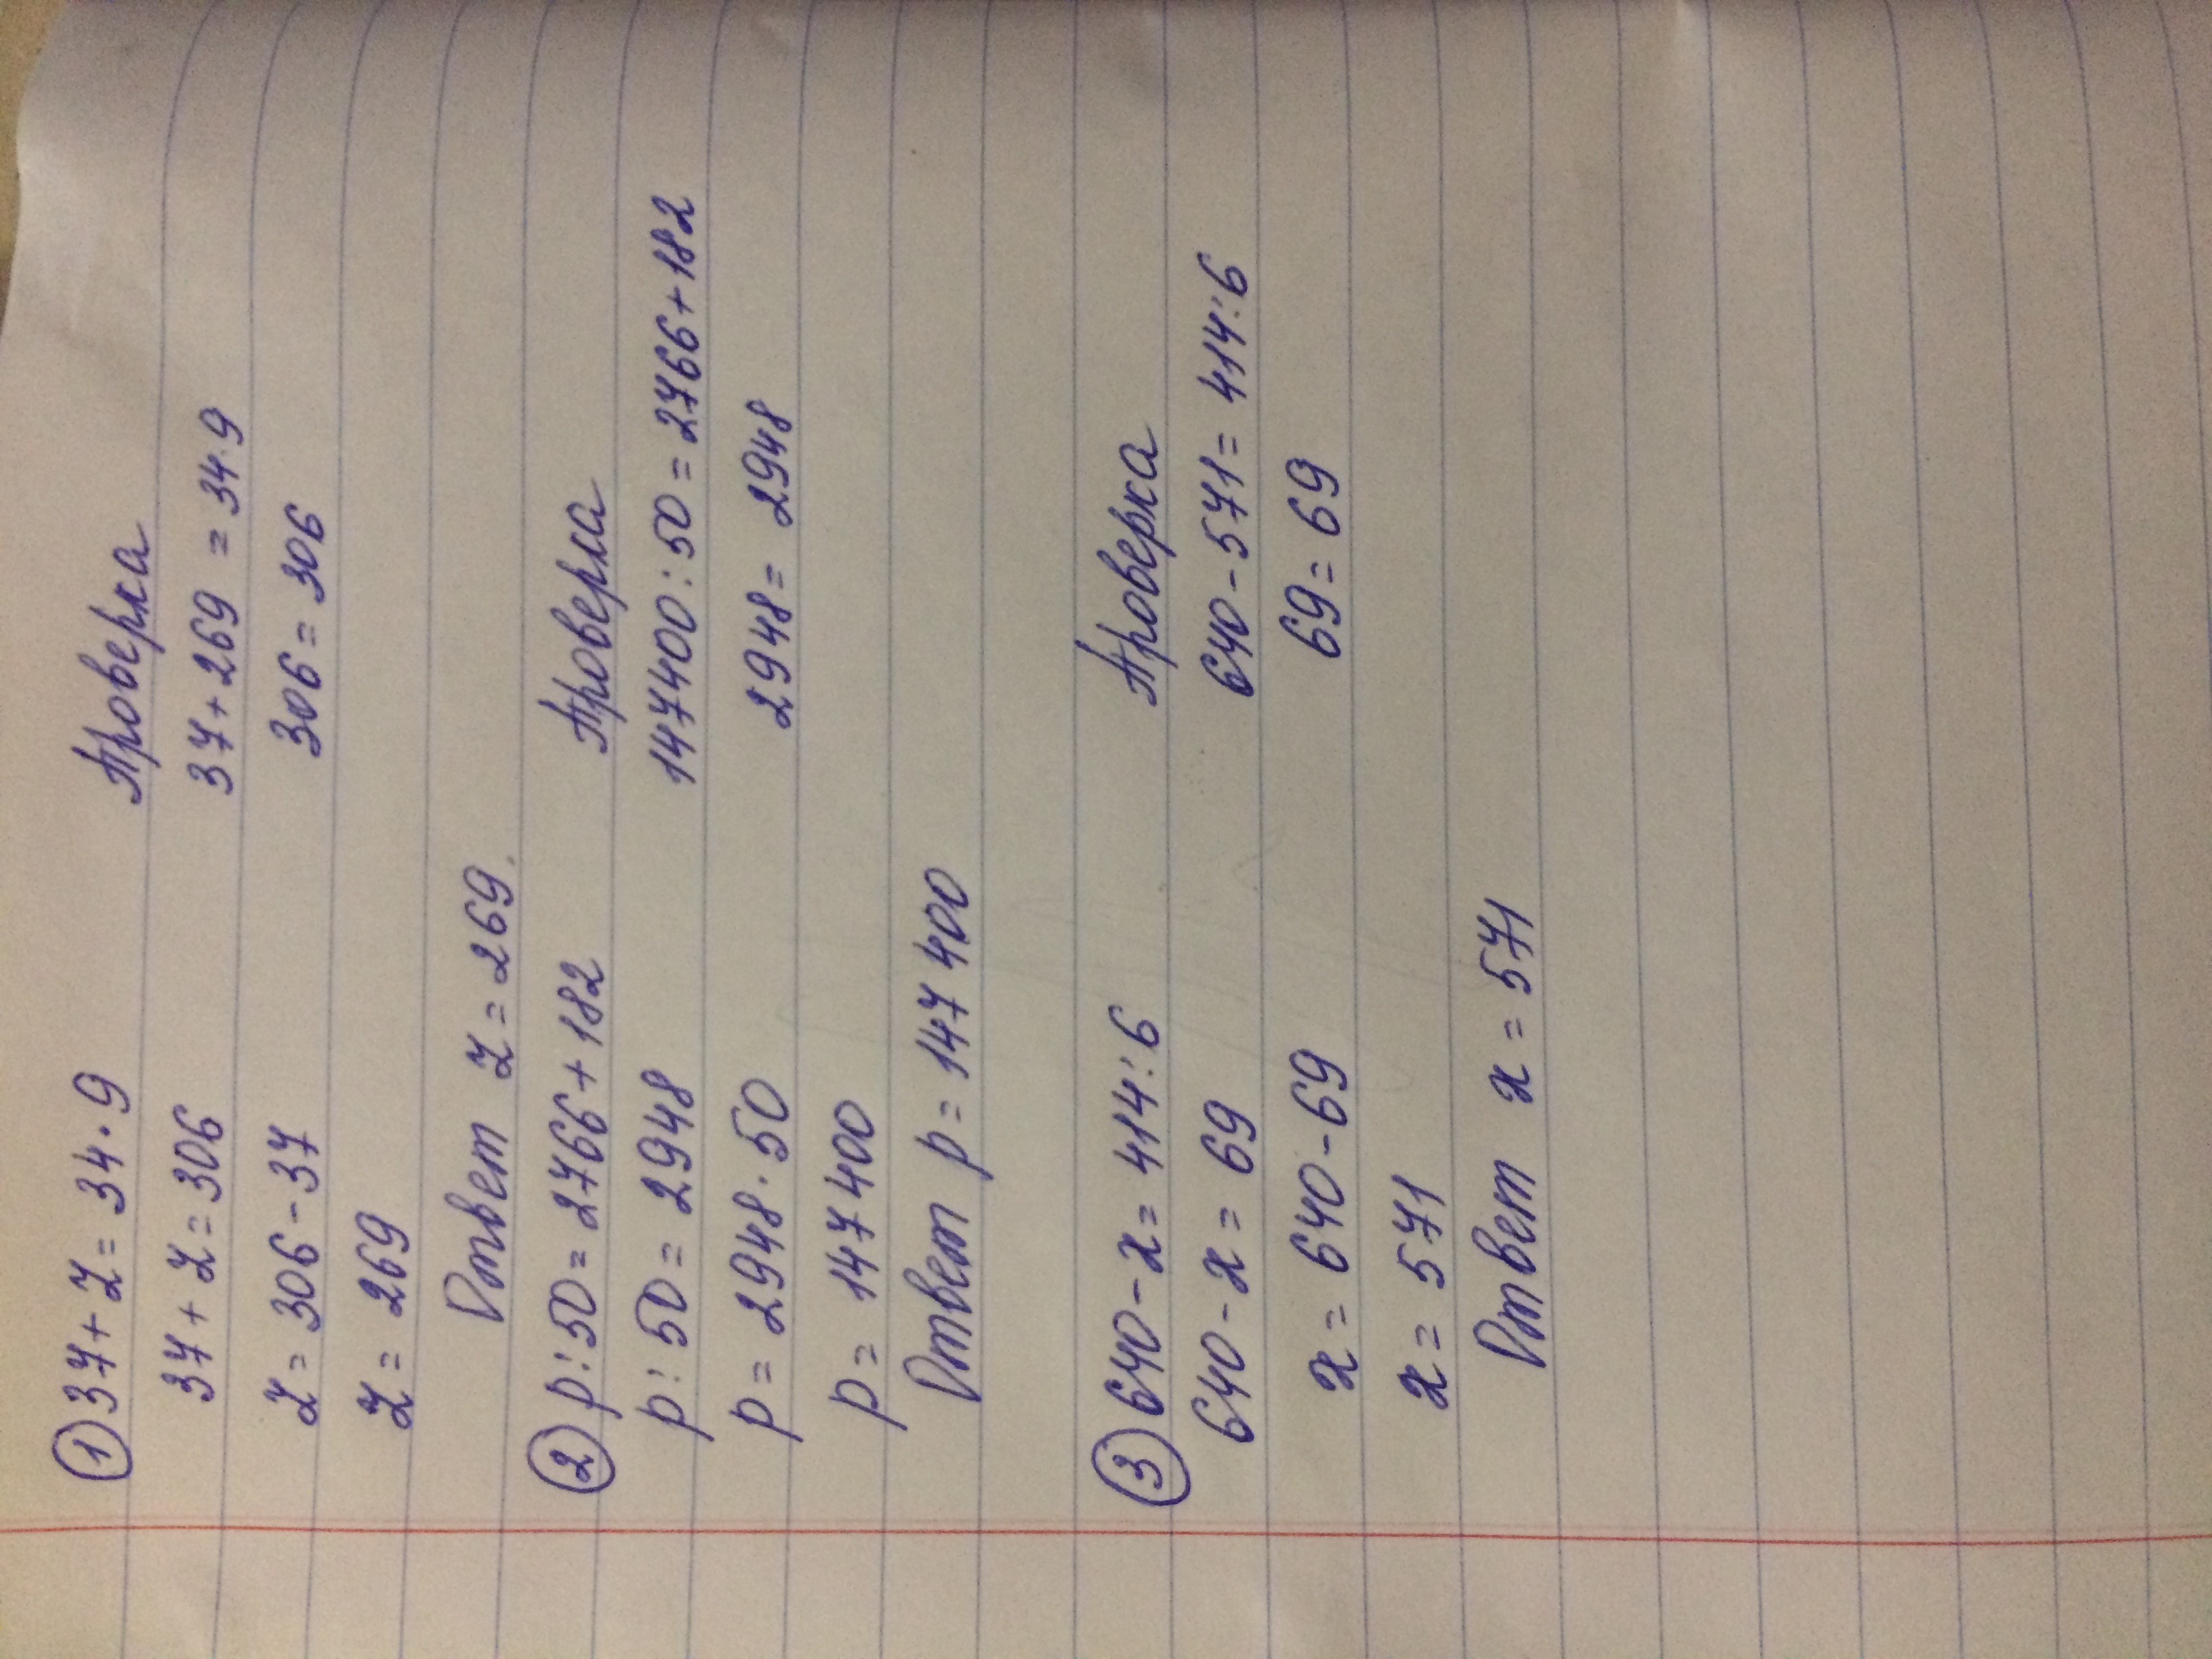 ① 37 + z = 34 · 9
37 + z = 306
z = 306 - 37
z = 269
Ответ z = 269.
Проверка
37 + 269 = 34 · 9
306 = 306
② p : 50 = 2766 + 182
p : 50 = 2948
p = 2948 · 50
p = 147400
Ответ p = 147400
Проверка
147400 : 50 = 2766 + 182
2948 = 2948
③ 640 - x = 414 : 6
640 - x = 69
x = 640 - 69
x = 571
Ответ x = 571
Проверка
640 - 571 = 414 : 6
69 = 69